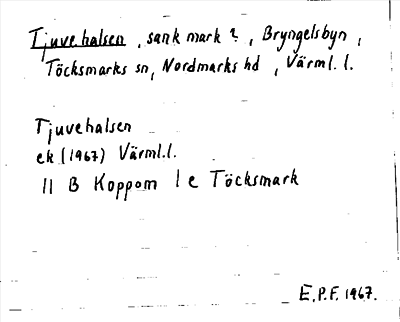 Tjuvehalsen, sank mark?, Bryngelsbyn,
Töcksmarks sn, Nordmarks hd, Värml. l.
Tjuvehalsen
ek (1967) Värml.l.
11 B Koppom 1 e Töcksmark
E.P.F. 1967.